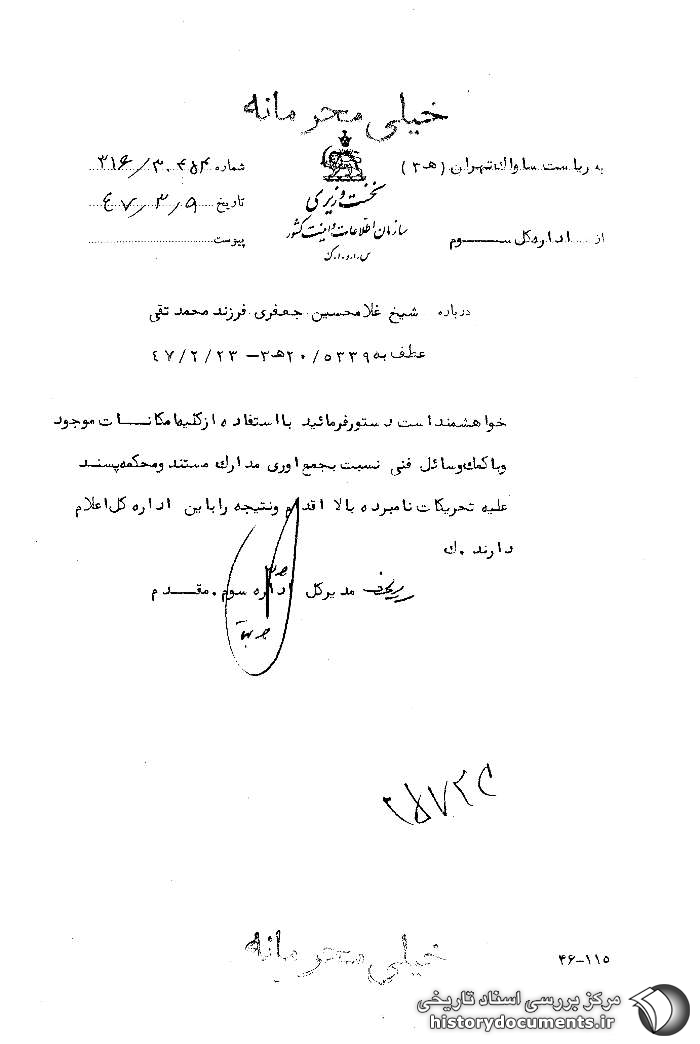 خیلی محرمانه
به ریاست ساواک تهران (هـ ۳)
نخست وزیری
شماره ۳۱۶/۳۰۴۵۴
سازمان اطلاعات و امنیت کشور
تاریخ ۴۷/۳/۹
س.ا.و.ا.ک
از اداره کل سوم
پیوست
درباره شیخ غلامحسین جعفری فرزند محمد تقی
عطف به ۲۰/۵۳۳۹هـ۳ - ۴۷/۲/۲۳
خواهشمند است دستور فرمائید با استفاده از کلیه امکانات موجود
و با کمک وسائل فنی نسبت بجمع اوری مدارک مستند و محکمه پسند
علیه تحریکات نامبرده بالا اقدام و نتیجه را باین اداره کل اعلام
دارند .ک
مدیر کل اداره سوم . مقدم
خیلی محرمانه
۴۶-۱۱۵
مرکز بررسی اسناد تاریخی
historydocuments.ir